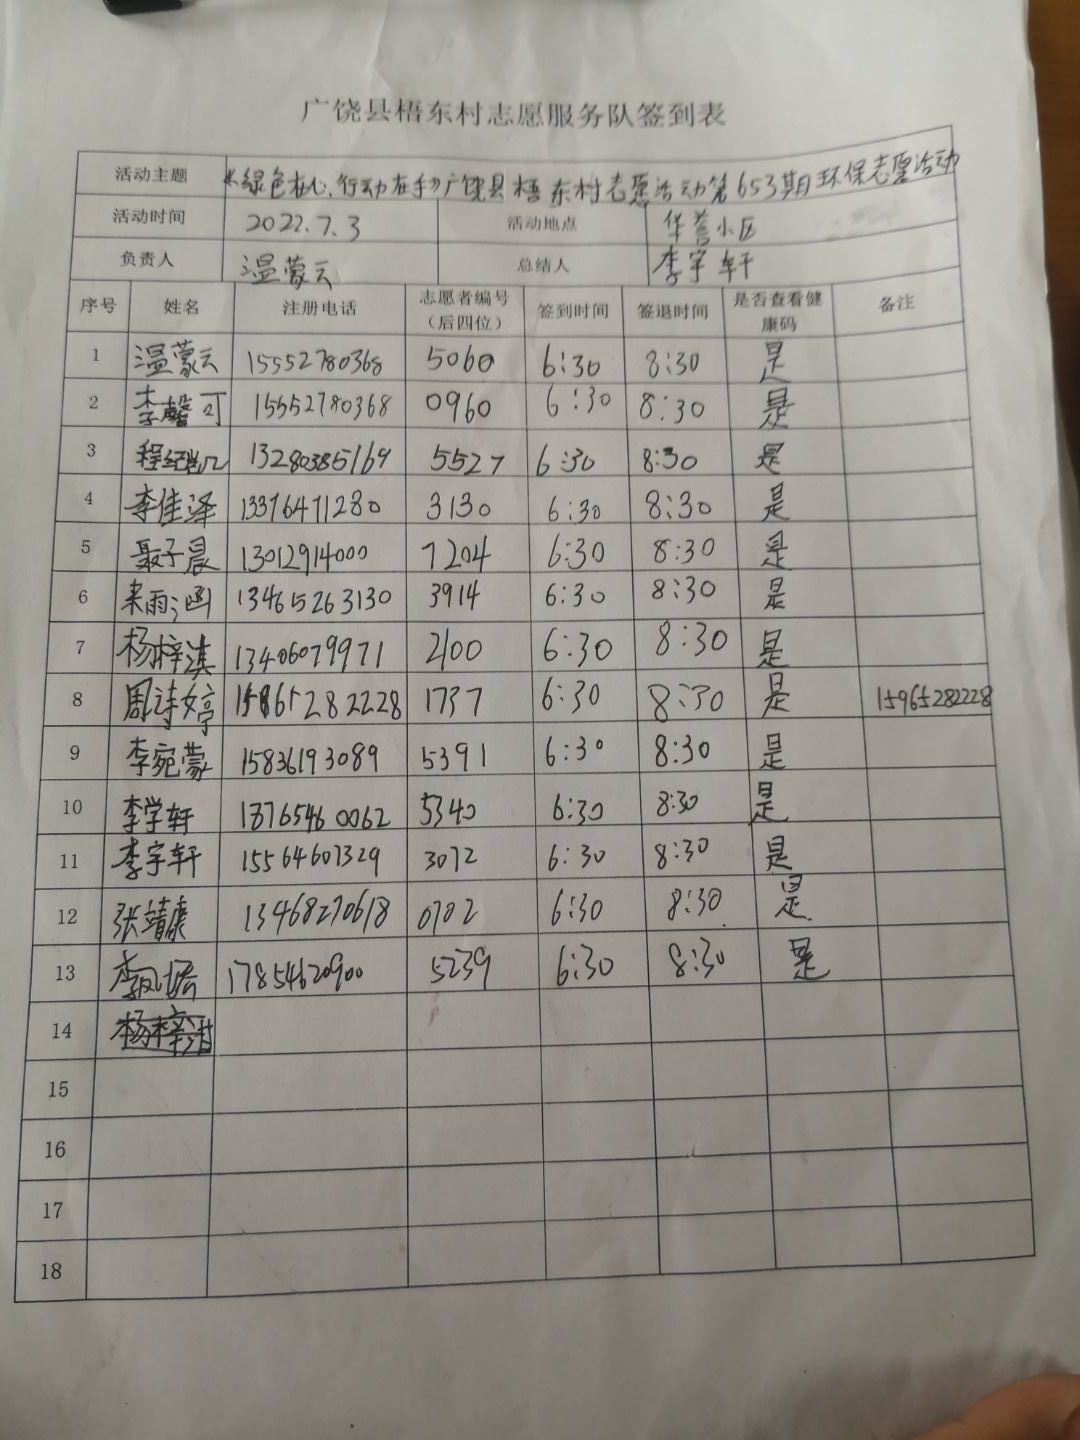 广饶县梧东村志愿服务队签到表
活动主题 《绿色在心、行动在手》广饶县梧东村志愿活动第653期环保志愿活动
活动时间 2022.7.3 活动地点 华誉小区
负责人 温蒙云 总结人 李宇轩
序号 姓名 注册电话 志愿者编号（后四位） 签到时间 签退时间 是否查看健康码 备注
1 温蒙云 15552780368 5060 6:30 8:30 是
2 李馨可 15552780368 0960 6:30 8:30 是
3 13280385169 5527 6:30 8:30 是
4 李佳泽 13376471280 3130 6:30 8:30 是
5 聂子晨 13012914000 7204 6:30 8:30 是
6 来雨涵 13465263130 3914 6:30 8:30 是
7 杨梓淇 13406079971 2100 6:30 8:30 是
8 周诗婷 1737 6:30 8:30 是 15965282228
9 李宛蒙 15836193089 5391 6:30 8:30 是
10 李学轩 13765460062 5340 6:30 8:30 是
11 李宇轩 15564607329 3072 6:30 8:30 是
12 张靖康 13468270618 0702 6:30 8:30 是
13 17854620900 5239 6:30 8:30 是
14
15
16
17
18